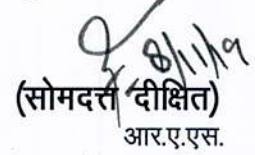 8/11/19
(सोमदत्त दीक्षित)
आर.ए.एस.